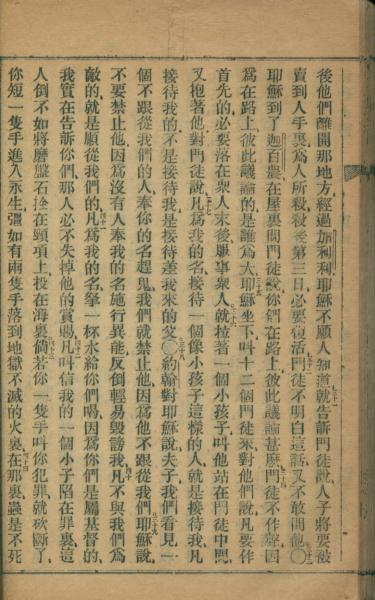 後他們離開那地方經過加利利耶穌不願人知道就告訴門徒說人子將要被
賣到人手裏爲人所殺殺後第三日必要復活門徒不明白這話又不敢問他〇
耶穌到了迦百農在屋裏問門徒說你們在路上彼此議論甚麽門徒不作聲因
爲在路上彼此議論的是誰爲大耶穌坐下叫十二個門徒來對他們說凡要作
首先的必要落在衆人末後服事衆人就拉著一個小孩子叫他站在門徒中間
又抱著他對門徒說凡爲我的名接待一個像小孩子這樣的人就是接待我凡
接待我的不是接待我是接待差我來的父〇約翰對耶穌說夫子我們看見一
個不跟從我們的人奉你的名趕鬼我們就禁止他因爲他不跟從我們耶穌說
不要禁止他因爲沒有人奉我的名施行異能反倒輕易毀謗我凡不與我們爲
敵的就是順從我們的凡爲我的名拏一杯水給你們喝因爲你們是屬基督的
我實在告訴你們那人必不失掉他的賞賜凡叫信我的一個小子陷在罪裏這
人倒不如將磨盤石拴在頸項上投在海裏倘若你一隻手叫你犯罪就砍斷了
你短一隻手進入永生彊如有兩隻手落到地獄不滅的火裏在那裏蟲是不死